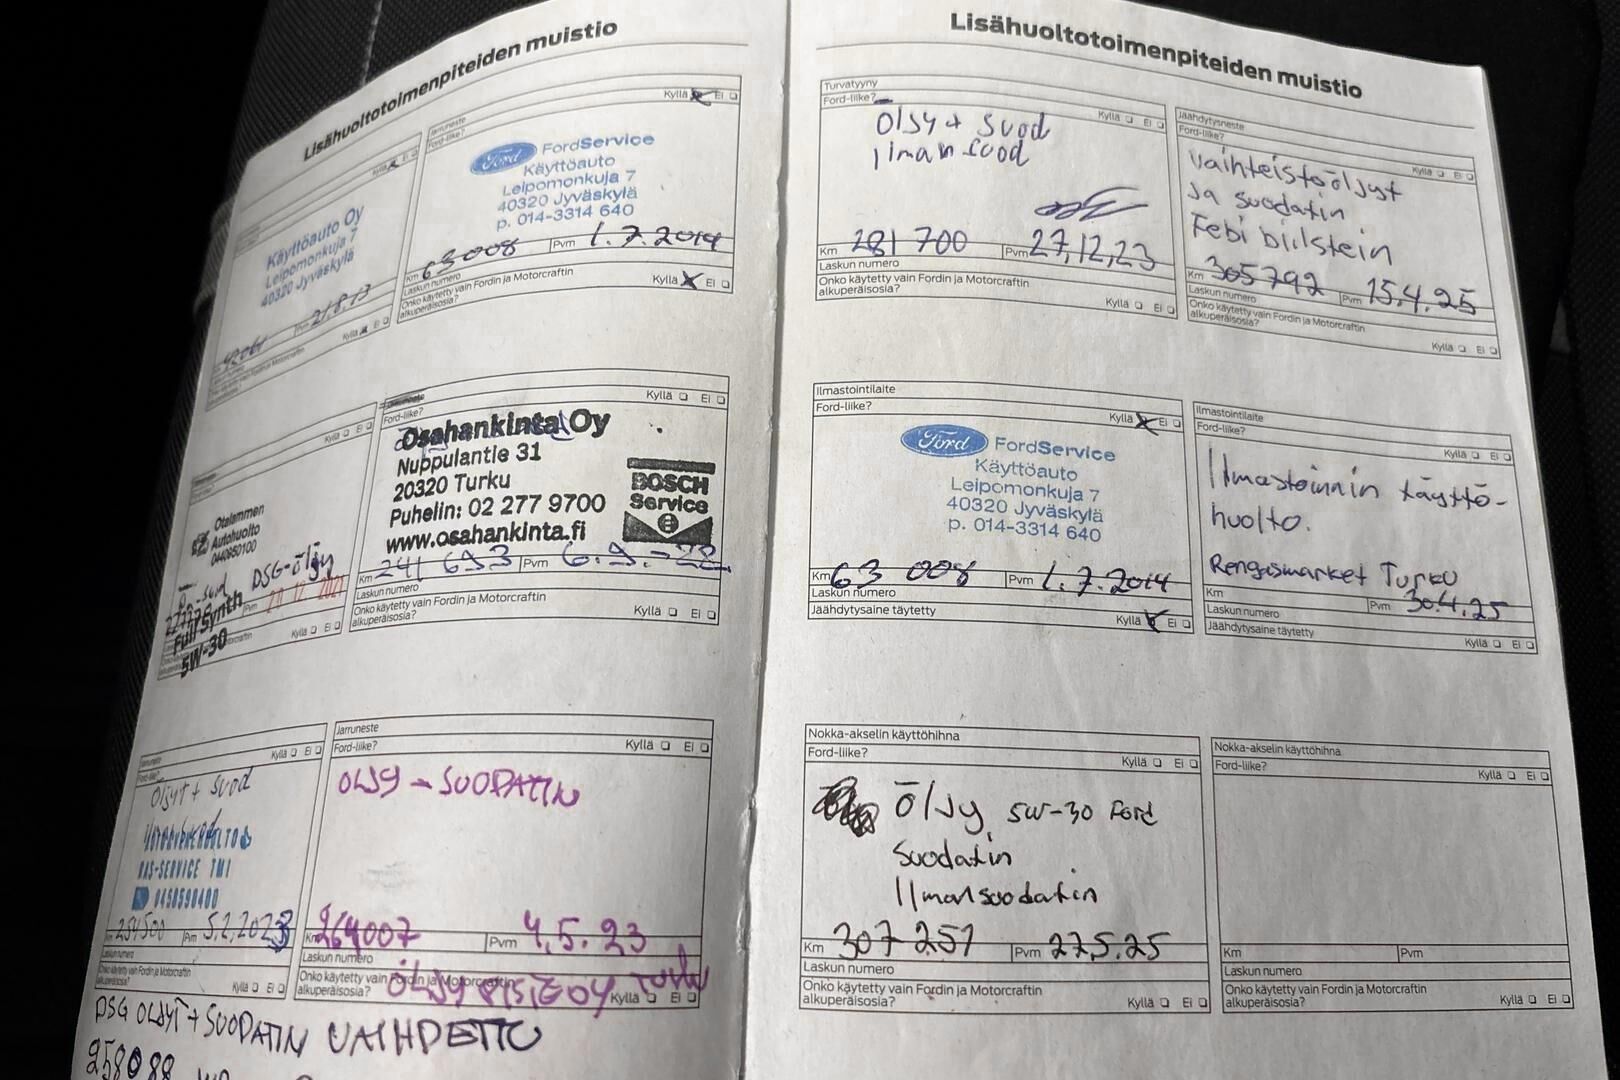 Lisähuoltotoimenpiteiden muistio
Kyllä Ei
Käyttöauto Oy
Leipomonkuja 7
40320 Jyväskylä
Pvm 21.8.13
Kyllä Ei
Jarruneste
Ford-liike?
Kyllä Ei
Ford FordService
Käyttöauto
Leipomonkuja 7
40320 Jyväskylä
p. 014-3314 640
Km 63 008 Pvm 1.7.2014
Laskun numero
Onko käytetty vain Fordin ja Motorcraftin
alkuperäisosia? Kyllä Ei
Kyllä Ei
Otalammen
Autohuolto
0440950100
DSG-öljy
Pvm 20 12 2021
Full Synth
5W-30
Kyllä Ei
Ford-liike? Kyllä Ei
Osahankinta Oy
Nuppulantie 31
20320 Turku
Puhelin: 02 277 9700
www.osahankinta.fi
BOSCH
Service
Km 241 693 Pvm 6.9.-22
Laskun numero
Onko käytetty vain Fordin ja Motorcraftin
alkuperäisosia? Kyllä Ei
Jarruneste
Ford-liike? Kyllä Ei
Öljyt + suod
RAS-SERVICE TMI
0458590400
Km 254500 Pvm 5.2.2023
Laskun numero
Onko käytetty vain Fordin ja Motorcraftin
alkuperäisosia? Kyllä Ei
DSG ÖLJYT + SUODATIN VAIHDETTU
258088
Jarruneste
Ford-liike? Kyllä Ei
ÖLJY - SUODATIN
Km 264007 Pvm 4.5.23
Laskun numero
Onko käytetty vain Fordin ja Motorcraftin
alkuperäisosia? Kyllä Ei
ÖLJYPISTE OY Turku
Lisähuoltotoimenpiteiden muistio
Turvatyyny
Ford-liike? Kyllä Ei
Öljy + suod
ilman suod
Km 281 700 Pvm 27,12,23
Laskun numero
Onko käytetty vain Fordin ja Motorcraftin
alkuperäisosia? Kyllä Ei
Jäähdytysneste
Ford-liike?
Kyllä Ei
Vaihteistoöljyt
ja suodatin
Febi bilstein
Km 305792 Pvm 15.4.25
Laskun numero
Onko käytetty vain Fordin ja Motorcraftin
alkuperäisosia?
Kyllä Ei
Ilmastointilaite
Ford-liike?
Kyllä Ei
Ford FordService
Käyttöauto
Leipomonkuja 7
40320 Jyväskylä
p. 014-3314 640
Km 63 008 Pvm 1.7.2014
Laskun numero
Jäähdytysaine täytetty Kyllä Ei
Ilmastointilaite
Ford-liike?
Kyllä Ei
Ilmastoinnin täyttö-
huolto.
Rengasmarket Turku
Km Pvm 30.4.25
Laskun numero
Jäähdytysaine täytetty Kyllä Ei
Nokka-akselin käyttöhihna
Ford-liike?
Kyllä Ei
Öljy, 5W-30 Ford
Suodatin
Ilmansuodatin
Km 307 251 Pvm 27.5.25
Laskun numero
Onko käytetty vain Fordin ja Motorcraftin
alkuperäisosia? Kyllä Ei
Nokka-akselin käyttöhihna
Ford-liike?
Kyllä Ei
Km Pvm
Laskun numero
Onko käytetty vain Fordin ja Motorcraftin
alkuperäisosia? Kyllä Ei